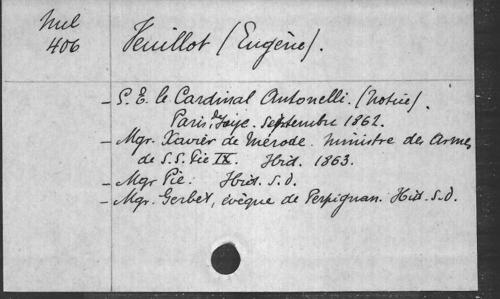 Mel
406
Veuillot (Eugène).
- S. E. le Cardinal Antonelli. (Notice).
Paris, de Soye. Septembre 1862.
- Mgr. Xavier de Mérode. Ministre des Armes
de S.S. Pie IX. Ibid. 1863.
- Mgr Pie. Ibid. S.D.
- Mgr. Gerbet, évêque de Perpignan. Ibid. S.D.